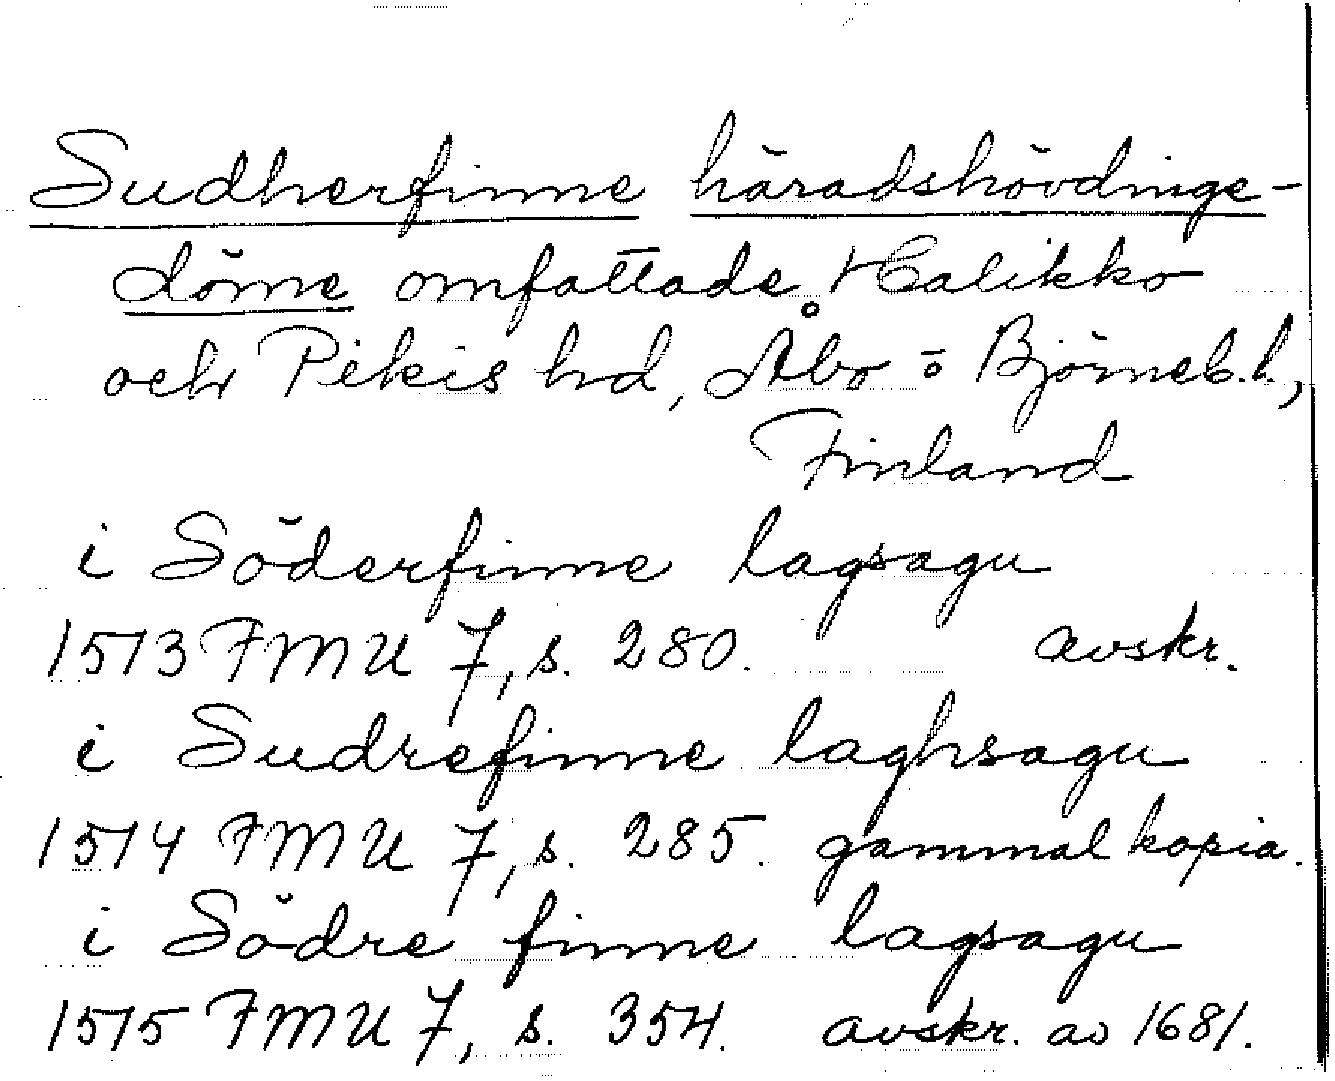 Sudherfinne häradshövdinge-
döme omfattade Halikko
och Pikis hd, Åbo o Björneb.l.,
Finland
i Söderfinne lagsagu
1513 FMU 7, s. 280. avskr.
i Sudrefinne laghsagu
1514 FMU 7, s. 285. gammal kopia.
i Södre finne lagsagu
1515 FMU 7, s. 354. avskr. av 1681.